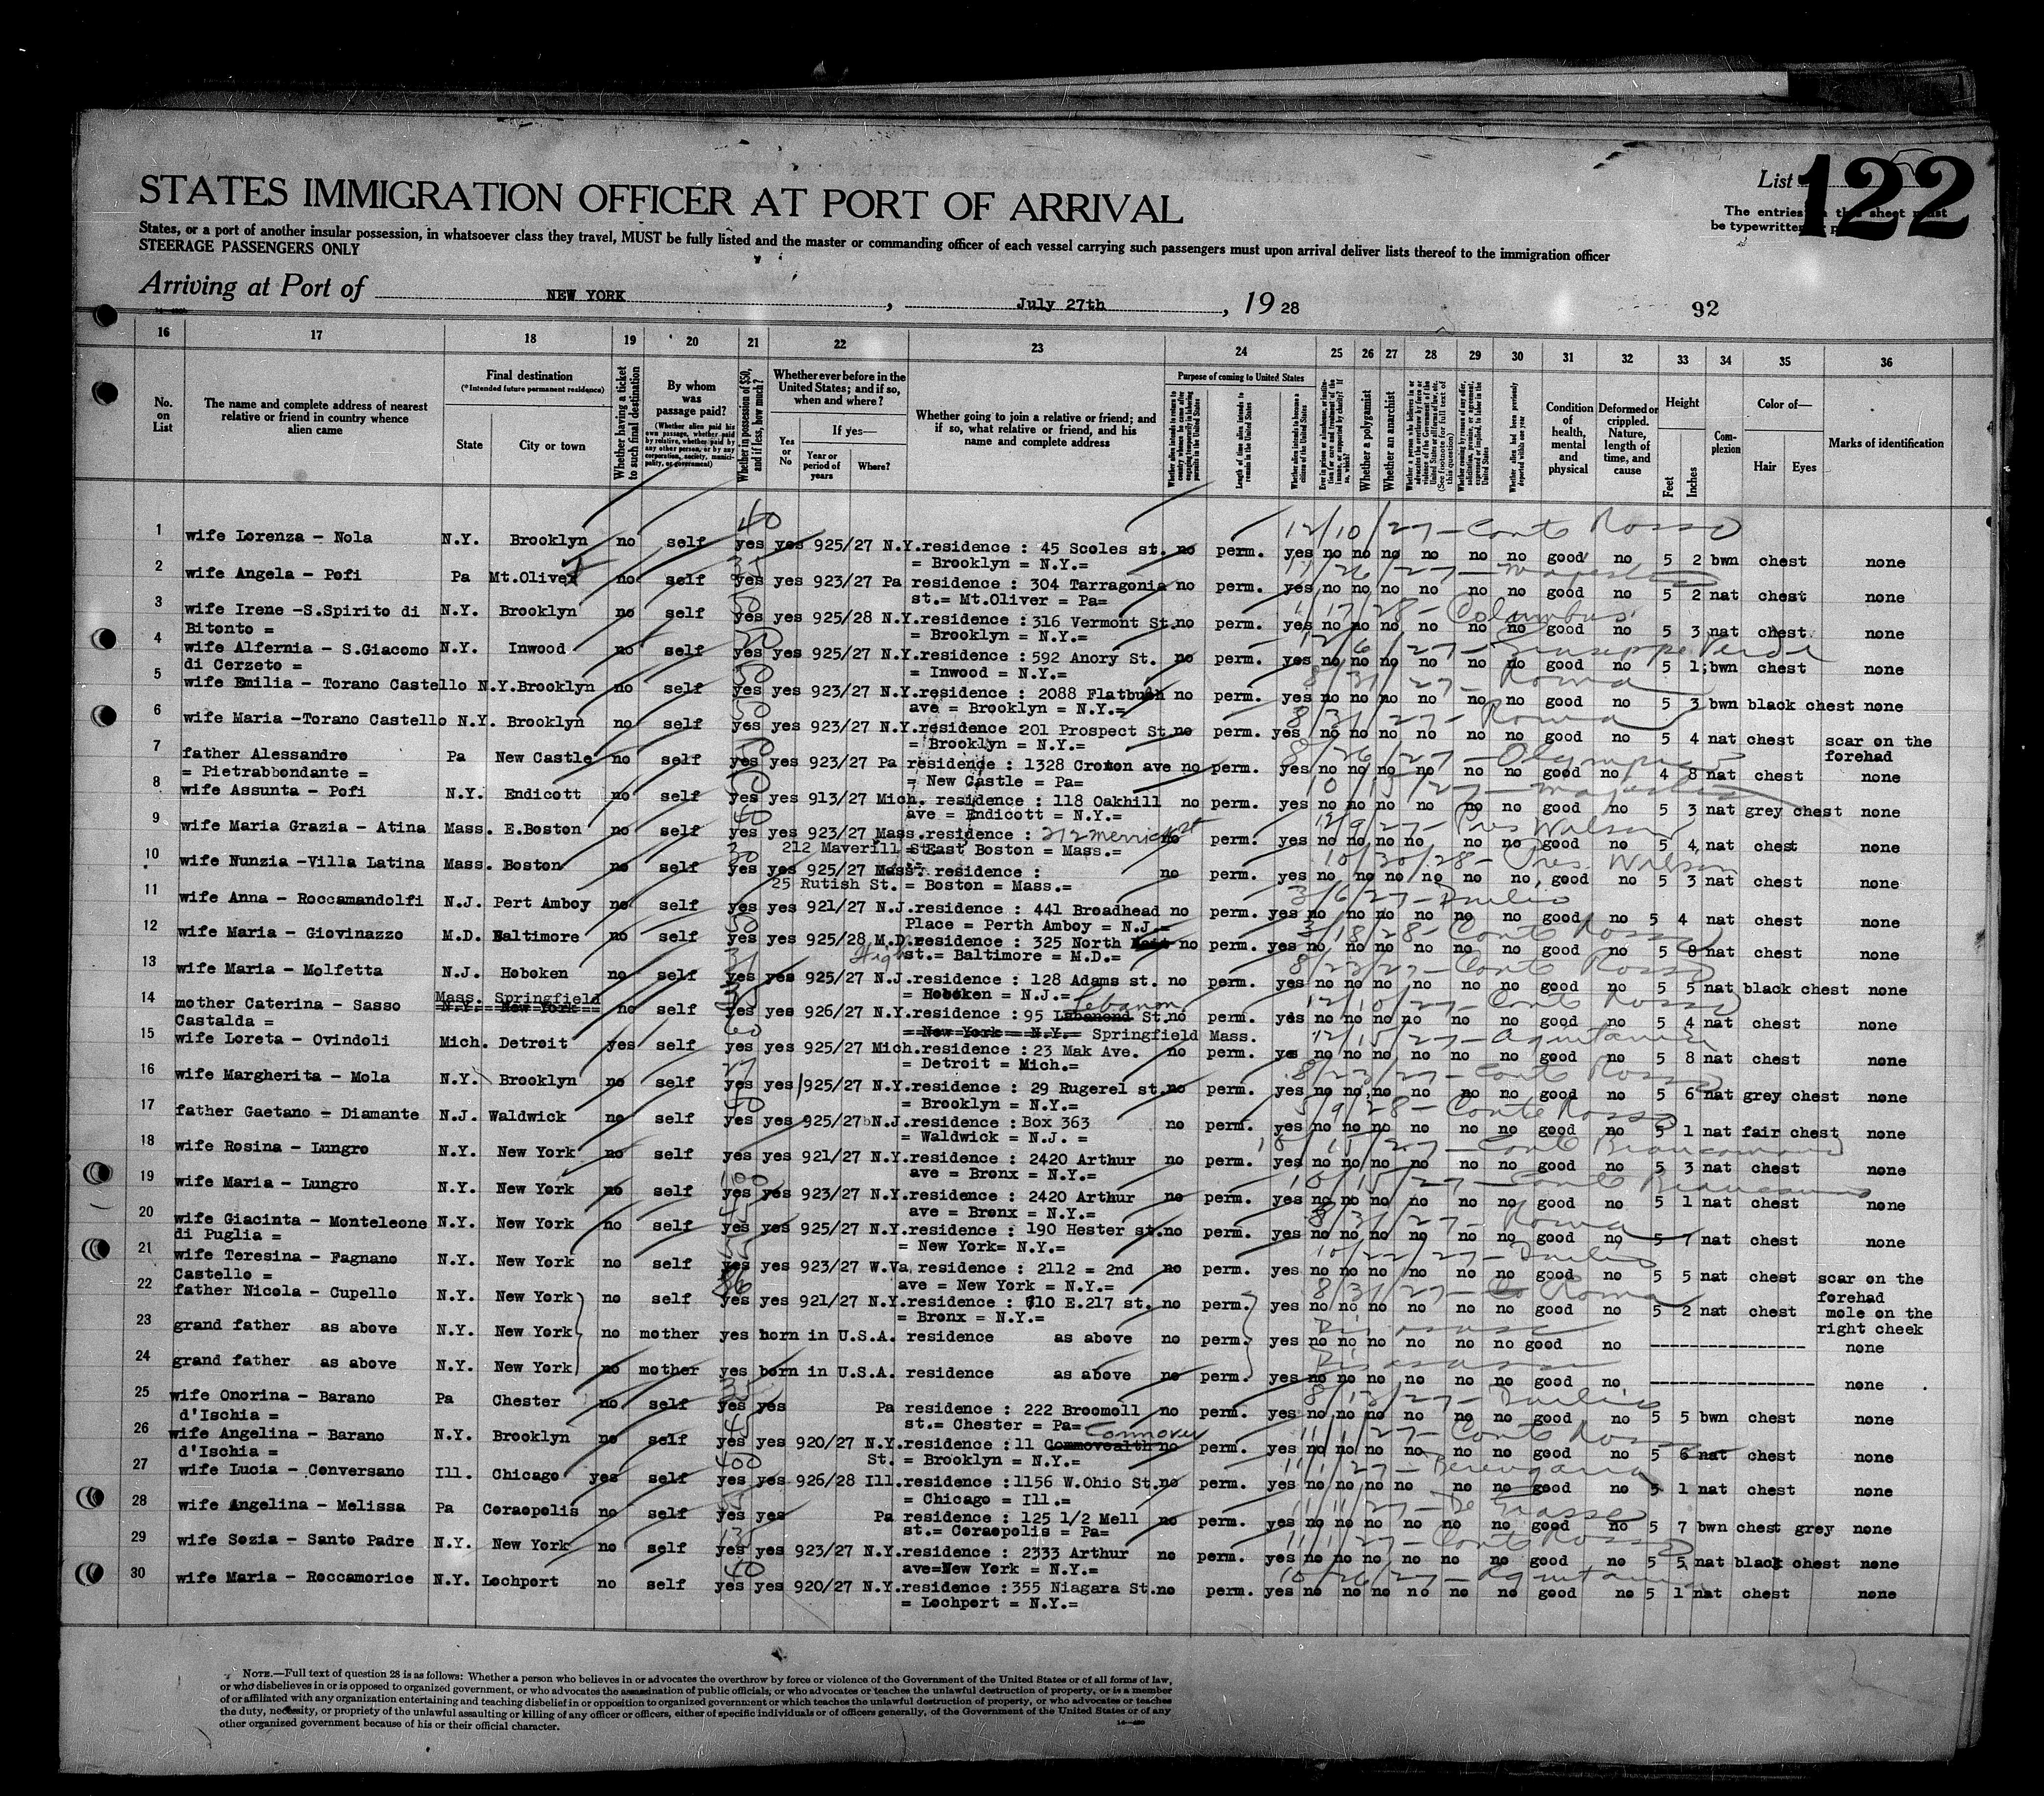 STATES IMMIGRATION OFFICER AT PORT OF ARRIVAL
List 122
The entries on this sheet must
be typewritten
States, or a port of another insular possession, in whatsoever class they travel, MUST be fully listed and the master or commanding officer of each vessel carrying such passengers must upon arrival deliver lists thereof to the immigration officer
STEERAGE PASSENGERS ONLY
Arriving at Port of NEW YORK , July 27th , 19 28
92
16 17 18 19 20 21 22 23 24 25 26 27 28 29 30 31 32 33 34 35 36
No. on List
The name and complete address of nearest relative or friend in country whence alien came
Final destination
(*Intended future permanent residence)
State
City or town
Whether having a ticket to such final destination
By whom was passage paid?
(Whether alien paid his own passage, whether paid by relative, whether paid by any other person, or by any corporation, society, municipality, or government)
Whether in possession of $50, and if less, how much?
Whether ever before in the United States; and if so, when and where?
Yes or No
If yes—
Year or period of years
Where?
Whether going to join a relative or friend; and if so, what relative or friend, and his name and complete address
Purpose of coming to United States
Length of time alien intends to remain in the United States
Whether alien intends to become a citizen of the United States
Whether a polygamist
Whether an anarchist
Condition of health, mental and physical
Deformed or crippled. Nature, length of time, and cause
Height
Feet
Inches
Complexion
Color of—
Hair
Eyes
Marks of identification
1 wife Lorenza - Nola N.Y. Brooklyn no self 40 yes yes 925/27 N.Y. residence : 45 Scoles st. no perm. yes no no no no no no good no 5 2 bwn chest none
12/10/27 - Conte Rosso
= Brooklyn = N.Y.=
2 wife Angela - Pofi Pa Mt.Oliver no self 35 yes yes 923/27 Pa residence : 304 Tarragonia no perm. yes no no no no no no good no 5 2 nat chest none
st.= Mt.Oliver = Pa=
3 wife Irene -S.Spirito di N.Y. Brooklyn no self 50 yes yes 925/28 N.Y. residence : 316 Vermont St. no perm. yes no no no no no no good no 5 3 nat chest none
1/17/28 - Columbus
Bitonto = = Brooklyn = N.Y.=
4 wife Alfernia - S.Giacomo N.Y. Inwood no self yes yes 925/27 N.Y. residence : 592 Anory St. no perm. yes no no no no no no good no 5 1 bwn chest none
12/6/27 - Giuseppe Verdi
di Cerzeto = = Inwood = N.Y.=
5 wife Emilia - Torano Castello N.Y. Brooklyn no self 50 yes yes 923/27 N.Y. residence : 2088 Flatbush no perm. yes no no no no no no good no 5 3 bwn black chest none
8/31/27 - Roma
ave = Brooklyn = N.Y.=
6 wife Maria -Torano Castello N.Y. Brooklyn no self 50 yes yes 923/27 N.Y. residence 201 Prospect St no perm. yes no no no no no no good no 5 4 nat chest scar on the forehad
8/31/27 - Roma
= Brooklyn = N.Y.=
7 father Alessandro Pa New Castle no self 50 yes yes 923/27 Pa residence : 1328 Croton ave no perm. yes no no no no no no good no 4 8 nat chest none
8/26/27 - Olympic
= Pietrabbondante = = New Castle = Pa=
8 wife Assunta - Pofi N.Y. Endicott no self 50 yes yes 913/27 Mich. residence : 118 Oakhill no perm. yes no no no no no no good no 5 3 nat grey chest none
10/15/27 - Majestic
ave = Endicott = N.Y.=
9 wife Maria Grazia - Atina Mass. E.Boston no self 40 yes yes 923/27 Mass. residence : no perm. yes no no no no no no good no 5 4 nat chest none
12/9/27 - Pres Wilson
212 Maverill St.= East Boston = Mass.=
10 wife Nunzia -Villa Latina Mass. Boston no self 30 yes yes 925/27 Mass. residence : no perm. yes no no no no no no good no 5 3 nat chest none
10/30/28 - Pres. Wilson
25 Rutish St. = Boston = Mass.=
11 wife Anna - Roccamandolfi N.J. Pert Amboy no self yes yes 921/27 N.J. residence : 441 Broadhead no perm. yes no no no no no no good no 5 4 nat chest none
3/6/27 - Duilio
Place = Perth Amboy = N.J.=
12 wife Maria - Giovinazzo M.D. Baltimore no self 50 yes yes 925/28 M.D. residence : 325 North no perm. yes no no no no no no good no 5 8 nat chest none
3/18/28 - Conte Rosso
High st.= Baltimore = M.D.=
13 wife Maria - Molfetta N.J. Hoboken no self yes yes 925/27 N.J. residence : 128 Adams st. no perm. yes no no no no no no good no 5 5 nat black chest none
8/23/27 - Conte Rosso
= Hoboken = N.J.=
Mass. Springfield
14 mother Caterina - Sasso N.Y. New York no self yes yes 926/27 N.Y. residence : 95 Lebanon St. no perm. yes no no no no no no good no 5 4 nat chest none
12/10/27 - Conte Rosso
Castalda = = New York = N.Y.= Springfield Mass.
15 wife Loreta - Ovindoli Mich. Detroit yes self 60 yes yes 925/27 Mich. residence : 23 Mak Ave. no perm. yes no no no no no no good no 5 8 nat chest none
12/15/27 - Aquitania
= Detroit = Mich.=
16 wife Margherita - Mola N.Y. Brooklyn no self yes yes 925/27 N.Y. residence : 29 Rugerel st. no perm. yes no no no no no no good no 5 6 nat grey chest none
8/23/27 - Conte Rosso
= Brooklyn = N.Y.=
17 father Gaetano - Diamante N.J. Waldwick no self 40 yes yes 925/27 N.J. residence : Box 363 no perm. yes no no no no no no good no 5 1 nat fair chest none
Conte Rosso
= Waldwick = N.J. =
18 wife Rosina - Lungro N.Y. New York no self yes yes 921/27 N.Y. residence : 2420 Arthur no perm. yes no no no no no no good no 5 3 nat chest none
10/15/27 - Conte Biancamano
ave = Bronx = N.Y.=
19 wife Maria - Lungro N.Y. New York no self 100 yes yes 923/27 N.Y. residence : 2420 Arthur no perm. yes no no no no no no good no 5 1 nat chest none
10/15/27 - Conte Biancamano
ave = Bronx = N.Y.=
20 wife Giacinta - Monteleone N.Y. New York no self 45 yes yes 925/27 N.Y. residence : 190 Hester st. no perm. yes no no no no no no good no 5 7 nat chest none
8/31/27 - Roma
di Puglia = = New York= N.Y.=
21 wife Teresina - Fagnano N.Y. New York no self 55 yes yes 923/27 W.Va. residence : 2112 = 2nd no perm. yes no no no no no no good no 5 5 nat chest scar on the forehad
10/22/27 - Duilio
Castello = ave = New York = N.Y.=
22 father Nicola - Cupello N.Y. New York no self 86 yes yes 921/27 N.Y. residence : 710 E.217 st. no perm. yes no no no no no no good no 5 2 nat chest mole on the right cheek
8/31/27 - Roma
= Bronx = N.Y.=
23 grand father as above N.Y. New York no mother yes born in U.S.A. residence as above no perm. yes no no no no no no good no ---------------- none
24 grand father as above N.Y. New York no mother yes born in U.S.A. residence as above no perm. yes no no no no no no good no ---------------- none
25 wife Onorina - Barano Pa Chester no self 35 yes yes Pa residence : 222 Broomoll no perm. yes no no no no no no good no 5 5 bwn chest none
8/13/27 - Duilio
d'Ischia = st.= Chester = Pa=
26 wife Angelina - Barano N.Y. Brooklyn no self 45 yes yes 920/27 N.Y. residence : 11 Commovealth Connover no perm. yes no no no no no no good no 5 6 nat chest none
11/1/27 - Conte Rosso
d'Ischia = St. = Brooklyn = N.Y.=
27 wife Lucia - Conversano Ill. Chicago yes self 400 yes yes 926/28 Ill. residence : 1156 W.Ohio St. no perm. yes no no no no no no good no 5 1 nat chest none
11/1/27 - Berengaria
= Chicago = Ill.=
28 wife Angelina - Melissa Pa Coraopolis no self 55 yes yes Pa residence : 125 1/2 Mell no perm. yes no no no no no no good no 5 7 bwn chest grey none
11/11/27 - De Grasse
st.= Coraopolis = Pa=
29 wife Sozia - Santo Padre N.Y. New York no self yes yes 923/27 N.Y. residence : 2333 Arthur no perm. yes no no no no no no good no 5 5 nat black chest none
11/1/27 - Conte Rosso
ave=New York = N.Y.=
30 wife Maria - Roccamorice N.Y. Lochport no self 40 yes yes 920/27 N.Y. residence : 355 Niagara St. no perm. yes no no no no no no good no 5 1 nat chest none
10/26/27 - Aquitania
= Lochport = N.Y.=
NOTE.—Full text of question 28 is as follows: Whether a person who believes in or advocates the overthrow by force or violence of the Government of the United States or of all forms of law,
or who disbelieves in or is opposed to organized government, or who advocates the assassination of public officials, or who advocates or teaches the unlawful destruction of property, or is a member
of or affiliated with any organization entertaining and teaching disbelief in or opposition to organized government or which teaches the unlawful destruction of property, or who advocates or teaches
the duty, necessity, or propriety of the unlawful assaulting or killing of any officer or officers, either of specific individuals or of officers generally, of the Government of the United States or of any
other organized government because of his or their official character.